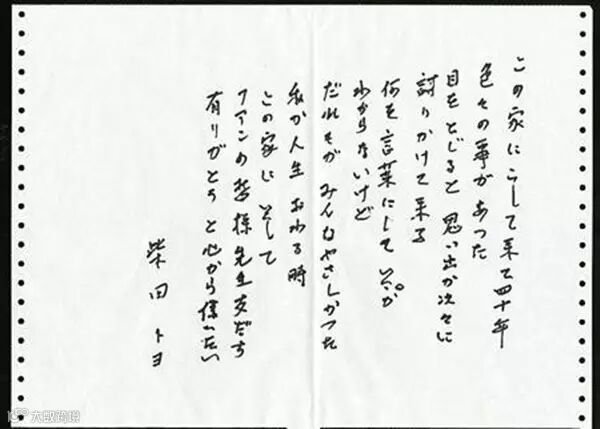 この家にこして来て四十年
色々の事があった
目をとじると思い出が次々に
討りかけて来る
何を言葉にして いゝか
わからないけど
だれもが みんなやさしかった
私が人生 おわる時
この家に そして
ファンの皆様 先生 友だち
有りがとう と心から
柴田 トヨ
大數跨境